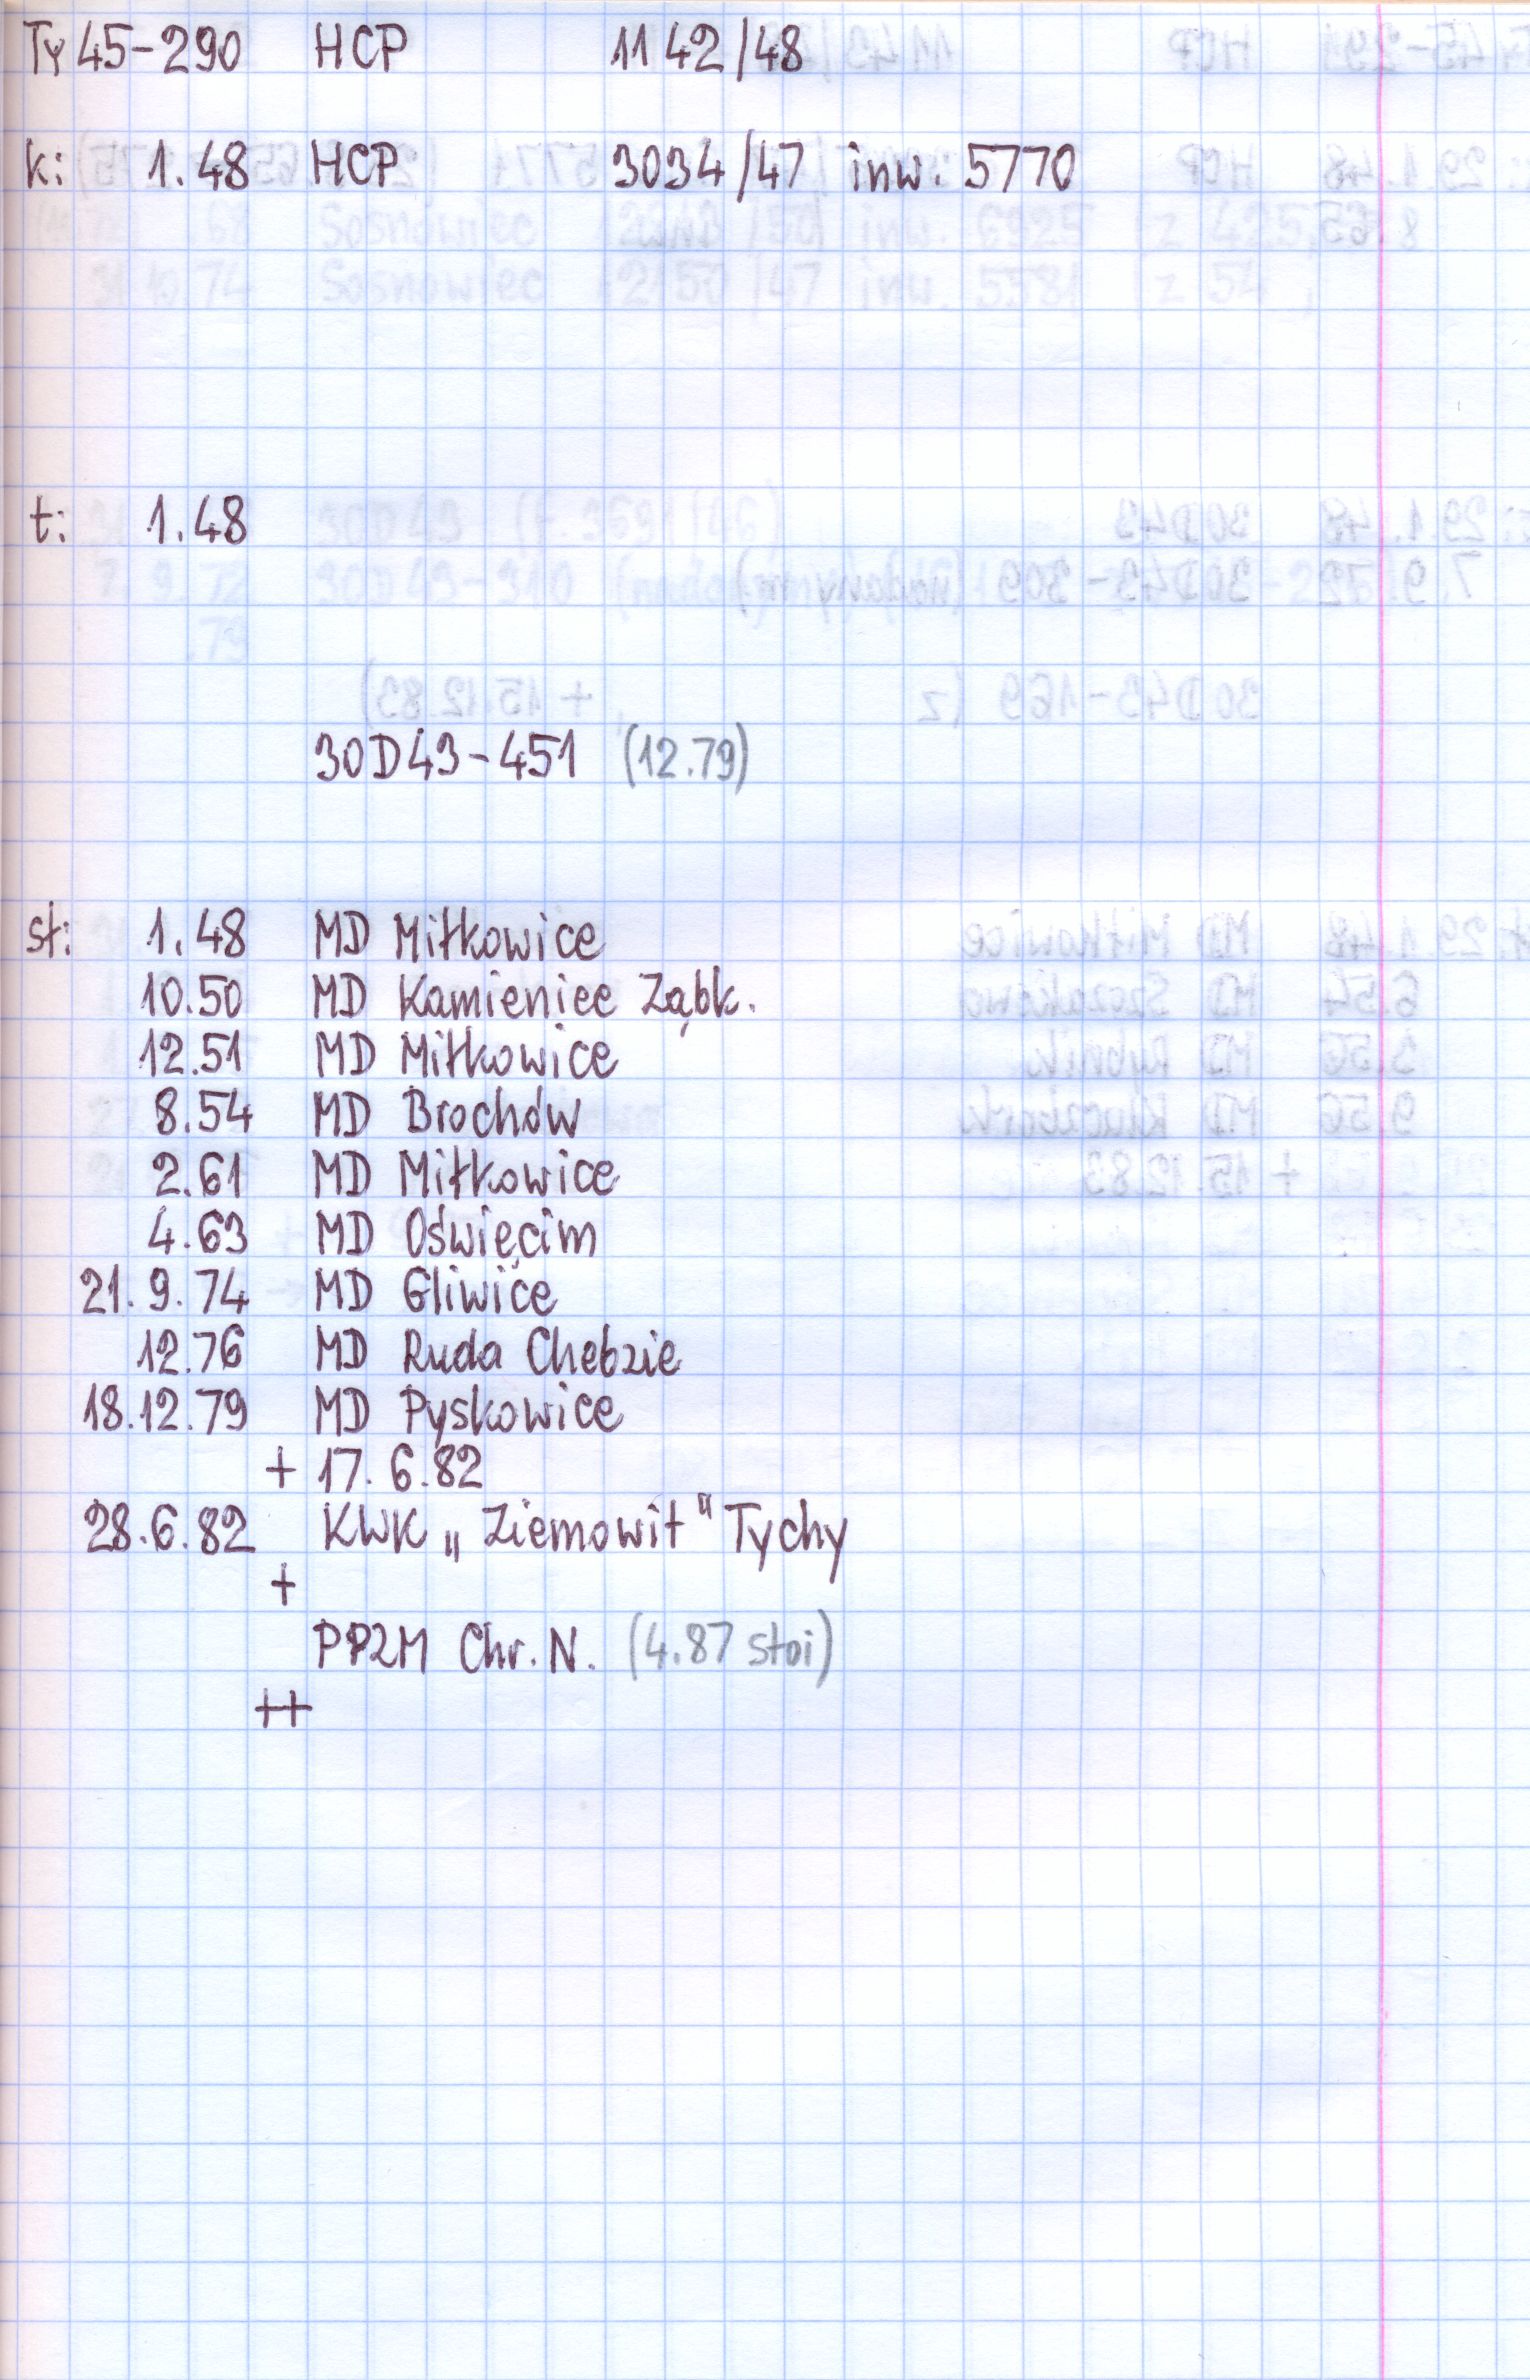 Ty45-290 HCP 1142/48
k: 1.48 HCP 3034/47 inw. 5770
t: 1.48
30D43-451 (12.79)
st: 1.48 MD Miłkowice
10.50 MD Kamieniec Ząbk.
12.51 MD Miłkowice
8.54 MD Brochów
2.61 MD Miłkowice
4.63 MD Oświęcim
21.9.74 MD Gliwice
12.76 MD Ruda Chebzie
18.12.79 MD Pyskowice
+ 17.6.82
28.6.82 KWK „Ziemowit" Tychy
+
PPZM Chr. N. (4.87 stoi)
++